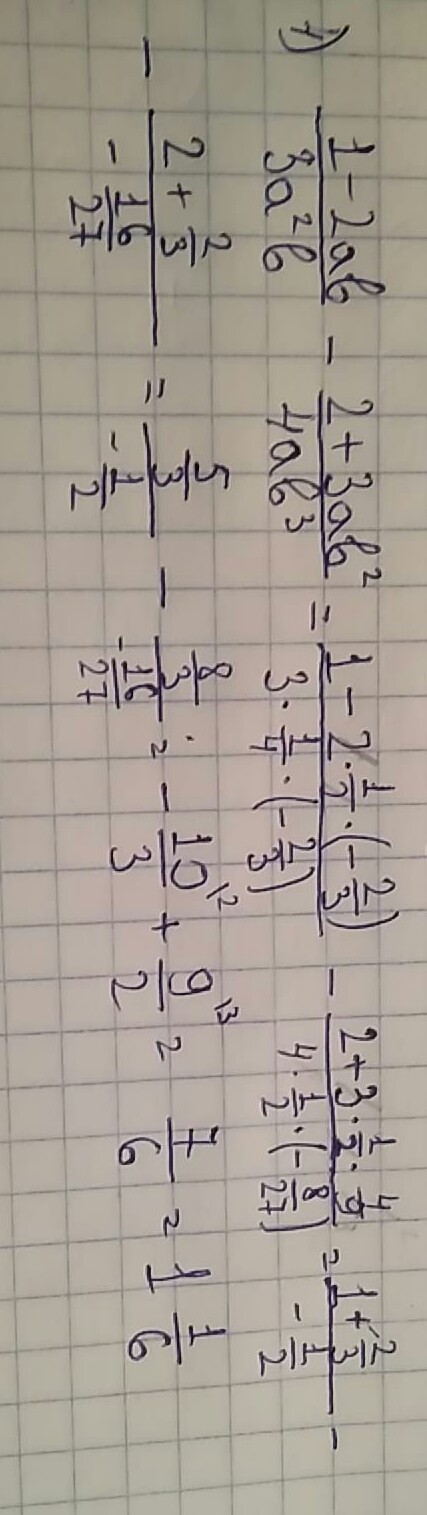 4) (1 - 2ab)/(3a²b) - (2 + 3ab²)/(4ab³) = (1 - 2·1/2·(-2/3))/(3·1/4·(-2/3)) - (2 + 3·1/2·4/9)/(4·1/2·(-8/27)) = (1 + 2/3)/(-1/2) -
- (2 + 2/3)/(-16/27) = (5/3)/(-1/2) - (8/3)/(-16/27) = - 10/3 \2 + 9/2 \3 = 7/6 = 1 1/6